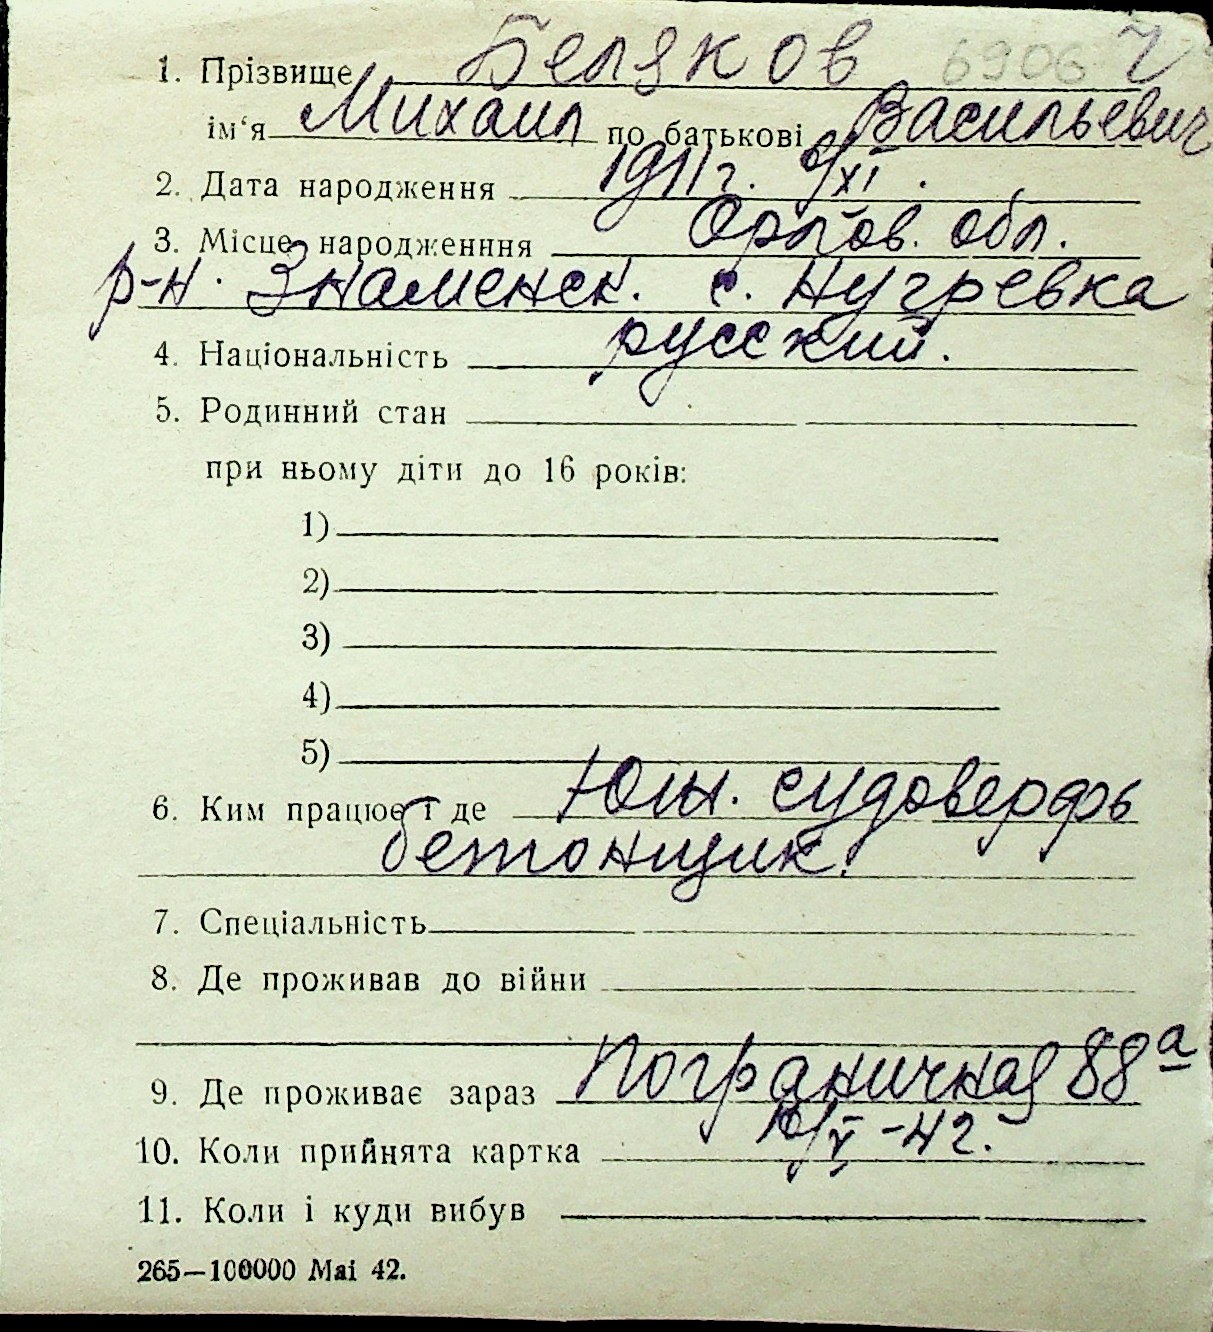 1. Прізвище Беляков 6906
ім‘я Михаил по батькові Васильевич
2. Дата народження 1911 г. 8/XI.
3. Місце народженння Орлов. обл.
р-н. Знаменск. с. Нугревка
4. Національність русский.
5. Родинний стан
при ньому діти до 16 років:
1)
2)
3)
4)
5)
6. Ким працює і де Южн. судоверфь
бетонщик.
7. Спеціальність
8. Де проживав до війни
9. Де проживає зараз Пограничная 88а
10. Коли прийнята картка /V-42.
11. Коли і куди вибув
265—100000 Mai 42.